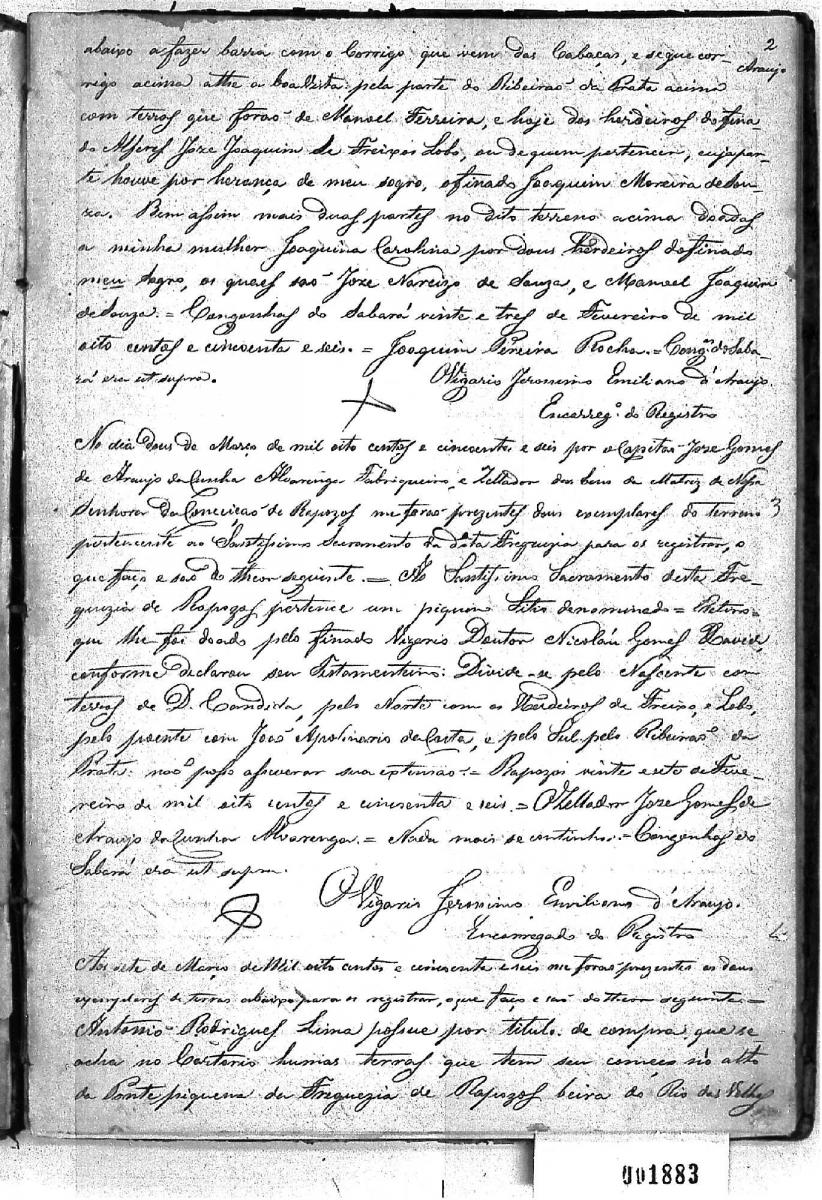 2
Araujo
abaixo a fazer barra com o Corrigo que vem das Cabaças, e segue cor-
rigo acima athe a boa Vista: pela parte do Ribeirão da Prata acima
com terras que forão de Manoel Ferreira, e hoje dos herdeiros do fina-
do Alferes Joze Joaquim de Freixos Lobo, ou de quem pertencer, cuja par-
te houve por herança de meu sogro, o finado Joaquim Moreira de Sou-
za. Bem assim mais duas partes no dito terreno acima doadas
a minha mulher Joaquina Carolina por dous Herdeiros do finado
meu sogro, os quaes são Joze Narcizo de Souza, e Manoel Joaquim
de Souza. = Congonhas do Sabará vinte e tres de Fevereiro de mil
oito centos e cincoenta e seis. = Joaquim Pereira Rocha. = Cong.s do Saba-
rá era ut supra.
O Vigario Jeronimo Emiliano d'Araujo.
Encarreg.o do Registro
No dia dous de Março de mil oito centos e cincoenta e seis por o Capitão Joze Gomes
de Araujo da Cunha Alvarenga Fabriqueiro, e Zellador dos bens da Matriz de Nossa
Senhora da Conceição de Rapozos me forão prezentes dous exemplares do terreno
3
pertencente ao Santissimo Sacramento da dita Freguezia para os registrar, o
que faço e são do theor seguinte. = Ao Santissimo Sacramento desta Fre-
guezia de Rapozos pertence um piqueno Sitio denominado = Retiro =
que lhe foi doado pelo finado Vigario Doutor Nicoláu Gomes Xavier,
conforme declarou seu Testamenteiro: Divide-se pelo Nascente com
terras de D. Candida, pelo Norte com os Herdeiros de Freixo, e Lobo,
pelo poente com João Apolinario da Costa, e pelo Sul pelo Ribeirão da
Prata: não posso asseverar sua extensão = Rapozos vinte e sete de Feve-
reiro de mil oito centos e cincoenta e seis. = O Zellador Joze Gomes de
Araujo da Cunha Alvarenga. = Nada mais se continha. = Congonhas do
Sabará era ut supra.
O Vigario Jeronimo Emiliano d'Araujo.
Encarregado do Registro
4
Aos sete de Março de Mil oito centos e cincoenta e seis me forão prezentes os dous
exemplares de terras abaixo para os registrar, o que faço e são do theor seguinte =
Antonio Rodrigues Lima possue por titulo de compra que se
acha no Cartorio humas terras que tem seu começo no alto
da Ponte piquena da Freguezia de Rapozos beira do Rio das Velhas
001883